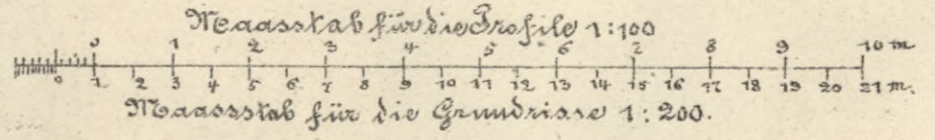 Maasstab für die Profile 1:100
0 1 2 3 4 5 6 7 8 9 10 m
0 1 2 3 4 5 6 7 8 9 10 11 12 13 14 15 16 17 18 19 20 21 m.
Maassstab für die Grundrisse 1:200.